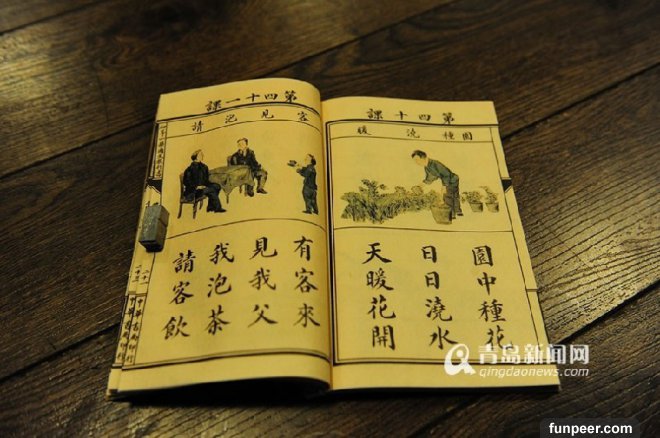 第四十課
園種澆暖
園中種花
日日澆水
天暖花開
第四十一課
客見泡請
有客來
見我父
我泡茶
請客飲
青岛新闻网
qingdaonews.com
funpeer.com